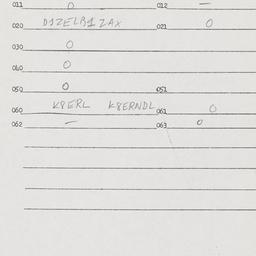 011 0 012 —
020 DJZELB1ZAX 021 0
030 0
040 0
050 0 051
060 K8ERL K8ERNDL 061 0
062 — 063 0